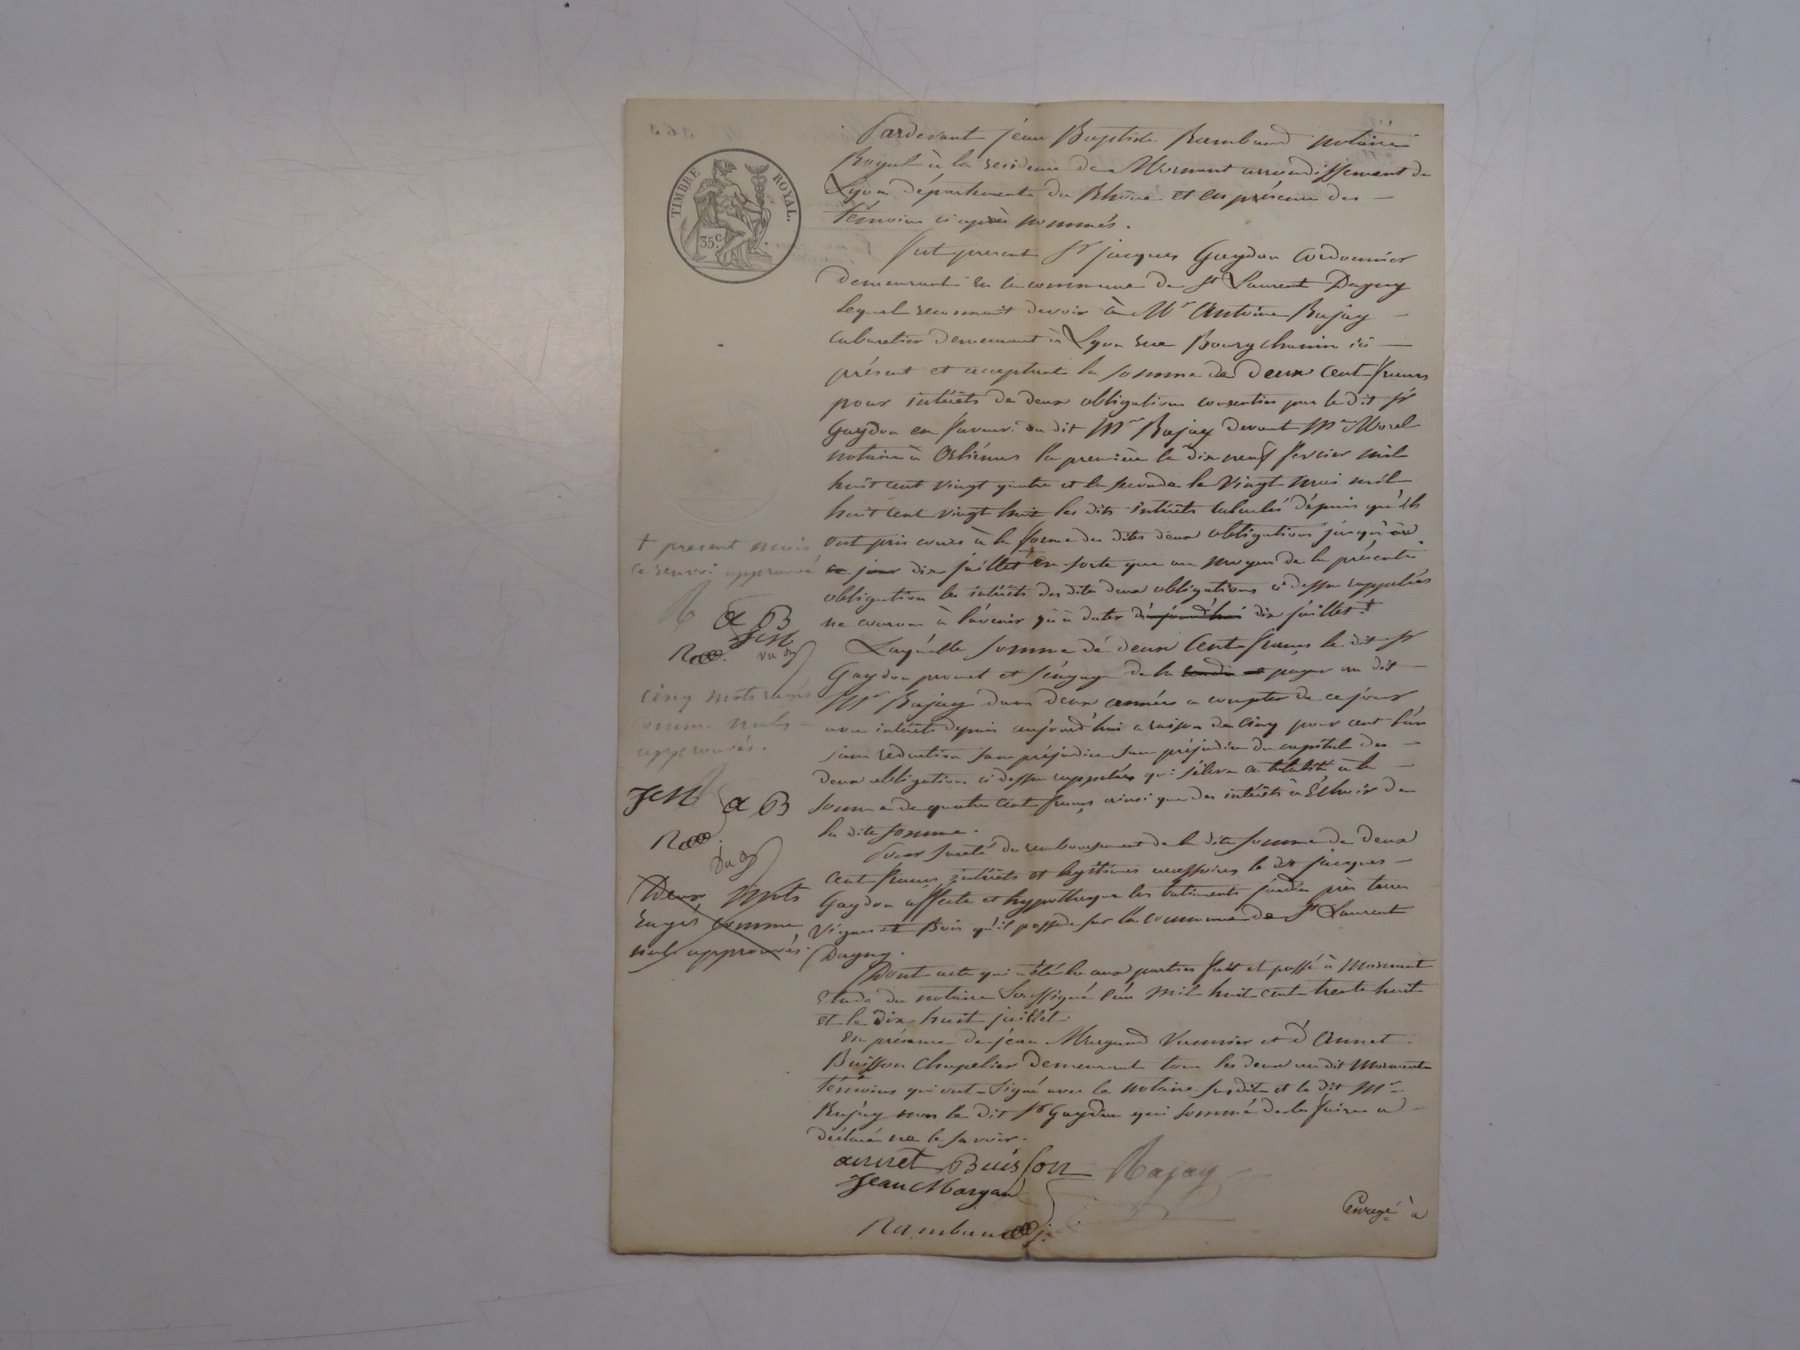 TIMBRE ROYAL.
35c
Pardevant jéan Baptiste Rambaud notaire
Royal à la residence de Mornant arrondissement de
Lyon département du Rhône et en présence des
témoins ci après nommés.
fut present Sr jacques Gaydon cordonnier
demeurant en la commune de St Laurent Dagny
lequel reconnait devoir à Mr Antoine Bajay
cabaretier demeurant à Lyon rue Bourgchanin ici
présent et acceptant la somme de deux cent francs
pour intérêts de deux obligations consenties par le dit Sr
Gaydon en faveur du dit Mr Bajay devant Me Morel
notaire à la première le dix neuf fevrier mil
huit cent vingt quatre et la seconde le vingt mai mil
huit cent vingt huit les dits intérêts calculés dépuis qu'ils
ont pris cours à la forme des dites deux obligations jusqu'au
ce jour dix juillet en sorte que au moyen de la présente
obligation les intérêts des dites deux obligations ci dessus rappelées
ne courront à l'avenir qu'à dater d'aujourd'hui dix juillet †
† present mois
ce renvoi approuvé
R a B
JCM
Laquelle somme de deux Cent francs le dit Sr
Gaydon promet et s'éngage de la payer au dit
Mr Bajay dans deux années a compter de ce jour
avec intérêts depuis aujourd'hui a raison de cinq pour cent l'an
sans reduction sans préjudice sans préjudice du capital des
deux obligations ci dessus rappelées qui s'éleve en totalité à la
somme de quatre cent francs ainsi que des intérêts à échoir de
la dite somme.
cinq mots rayés
comme nuls
approuvés.
JCM a B
Pour sureté du remboursement de la dite somme de deux
cent francs, intérêts et legitimes accessoires le dit jacques
Gaydon affecte et hypotheque les batiments jardin près terres
Vignes et Bois qu'il possede sur la commune de St Laurent
Dagny.
Deux Mots
rayés comme
nuls approuvés
Dont acte qui a été lu aux parties fait et passé à Mornant
étude du notaire soussigné l'an mil huit cent trente huit
et le dix huit juillet.
En présence de jéan Margand et d'Annet
Buisson chapelier demeurant tous les deux au dit Mornant
témoins qui ont signé avec le notaire susdit et le dit Mr
Bajay non le dit Sr Gaydon qui sommé de le faire a
déclaré ne le savoir.
annet Buisson Bajay
Jean Margand
Rambaud
Enregé à